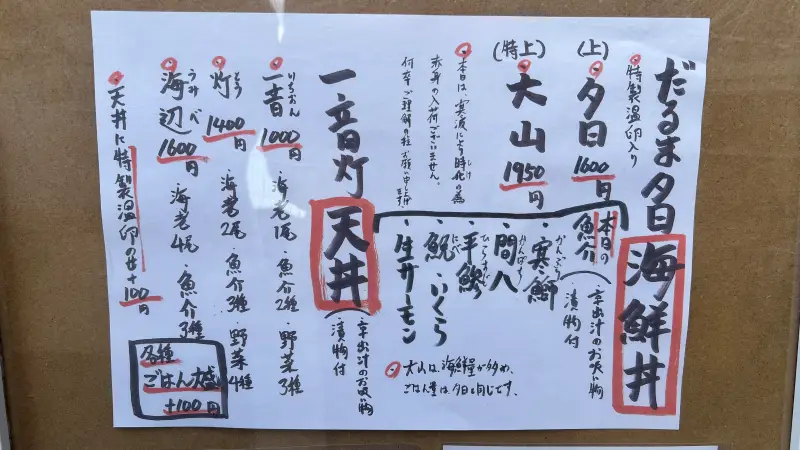 だるま夕日海鮮丼
特製温卵入り
(上)
夕日 1600円
(特上)
大山 1950円
本日の魚介
・京出汁のお吸い物
・漬物付
・寒鰤
かんぶり
・間八
かんぱち
・平鮃
・鮸
にべ
・いくら
・生サーモン
本日は、寒波により時化の為
しけ
赤身の入荷ございません。
何卒ご理解の程お願い申し上げます
大山は、海鮮量が多め、
ごはん量は夕日と同じです。
一音灯天丼
・京出汁のお吸い物
・漬物付
一音 1000円 ・海老1尾・魚介2種・野菜3種
いちおん
灯 1400円 ・海老2尾・魚介3種・野菜4種
海辺 1600円 ・海老4尾・魚介3種
うみべ
天丼に特製温卵のせ+100円
各種
ごはん大盛
+100円